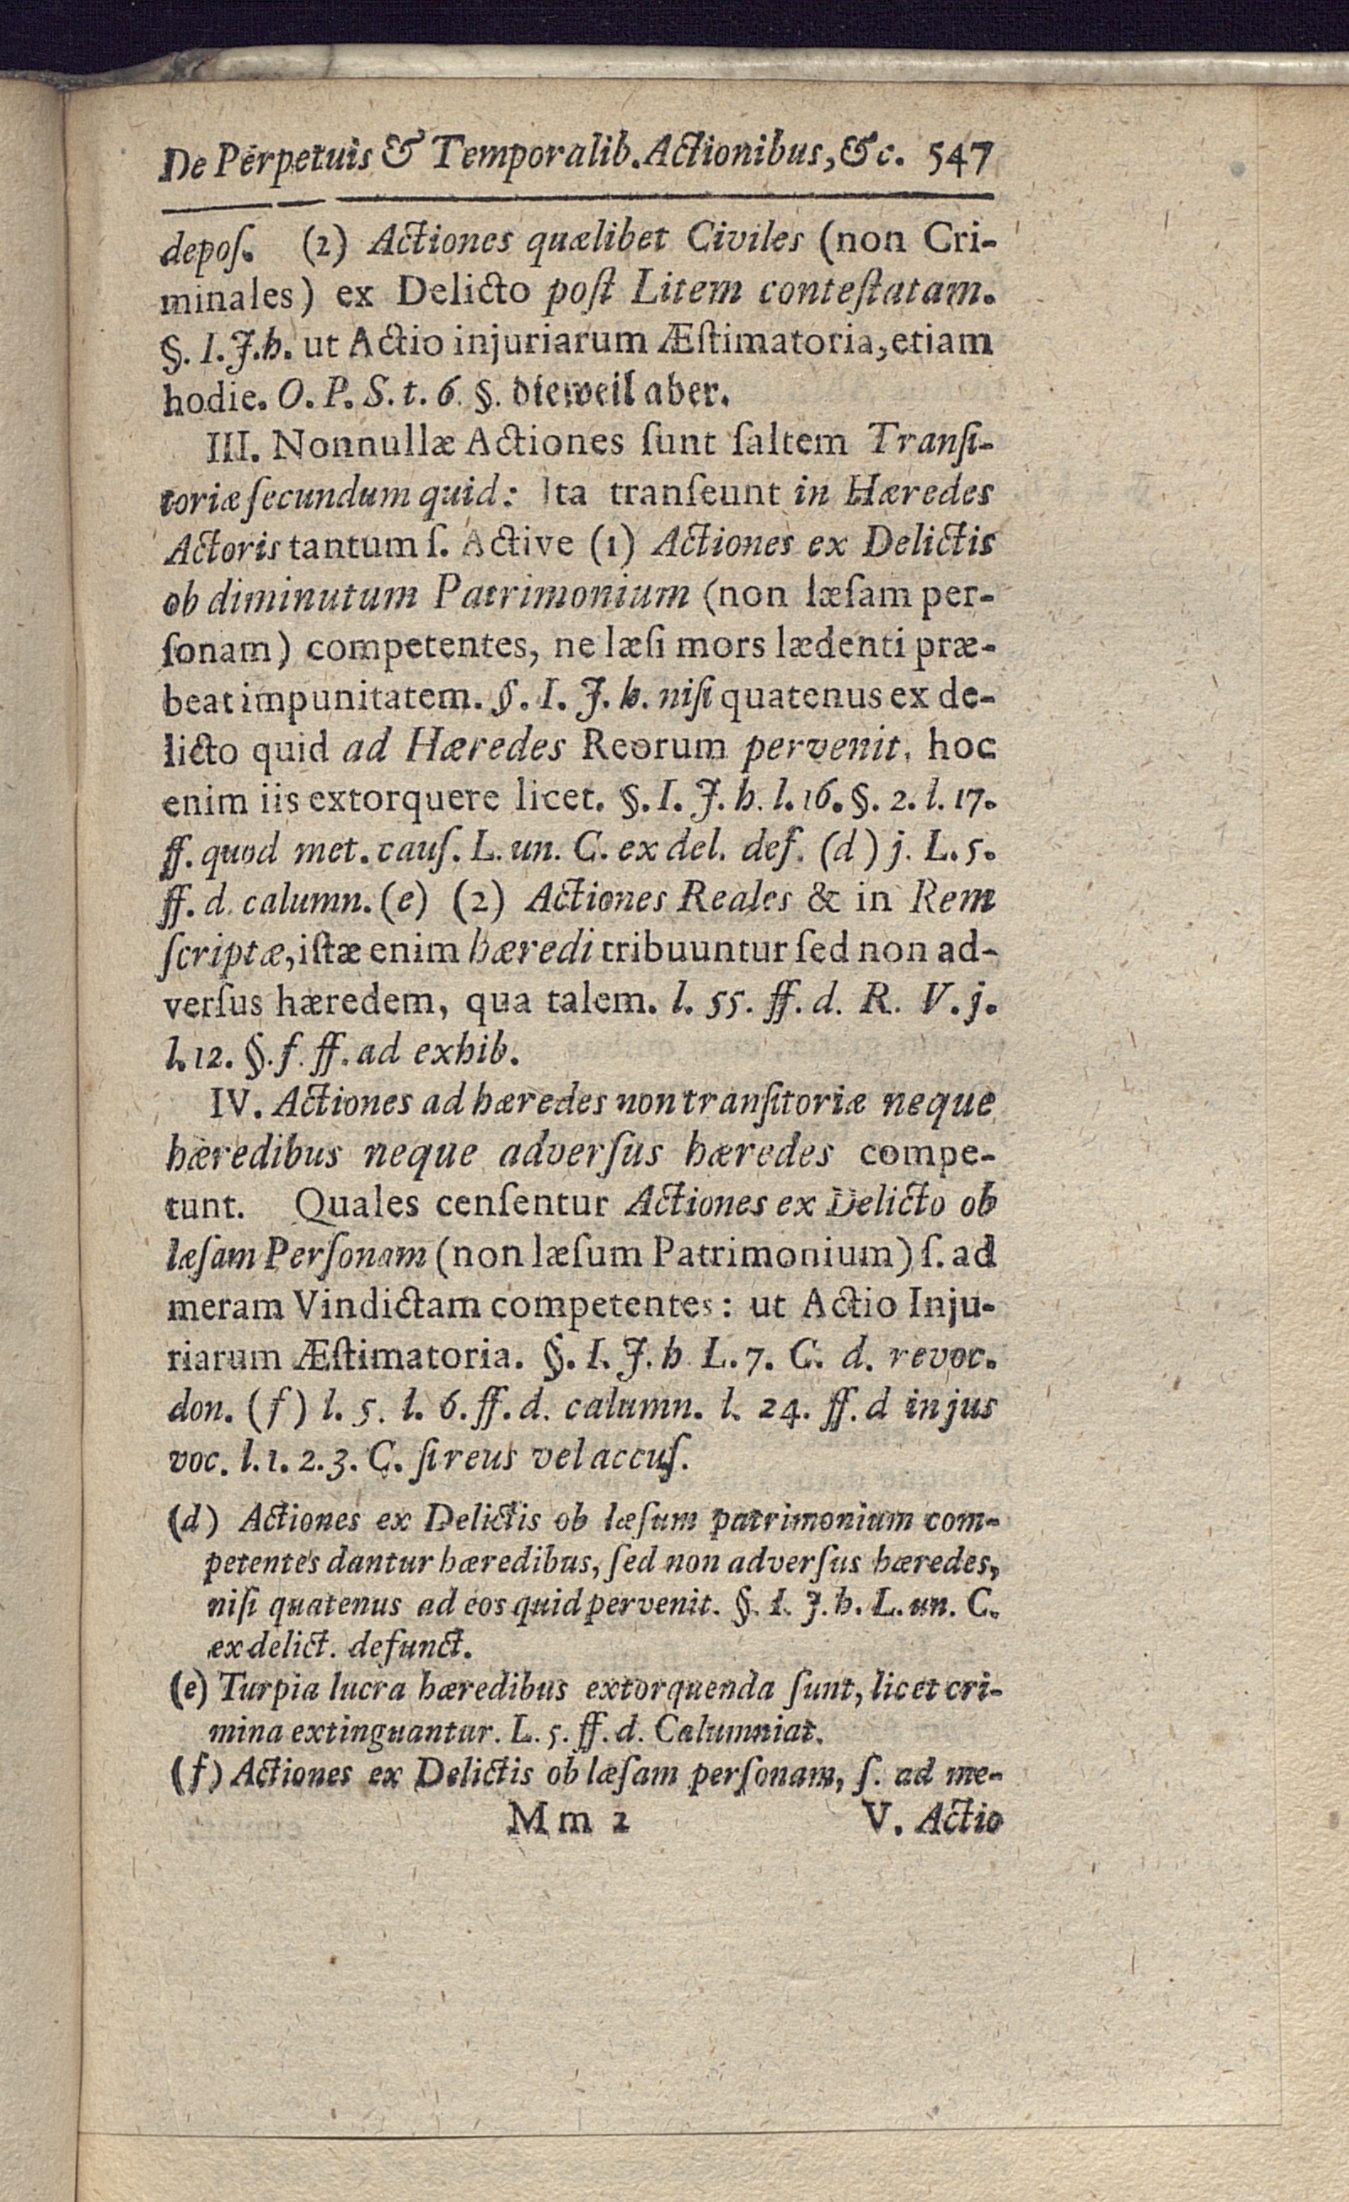 De Perpetuis & Temporalib. Actionibus, &c. 547
depoſ. (2) Actiones quælibet Civiles (non Cri-
minales) ex Delicto poſt Litem conteſtatam.
§. I. J. h. ut Actio injuriarum Æſtimatoria, etiam
hodie. O. P. S. t. 6. §. dieweil aber.
III. Nonnullæ Actiones ſunt ſaltem Tranſi-
toriæ ſecundum quid: Ita tranſeunt in Hæredes
Actoris tantum ſ. Active (1) Actiones ex Delictis
ob diminutum Patrimonium (non læſam per-
ſonam) competentes, ne læſi mors lædenti præ-
beat impunitatem. §. I. J. h. niſi quatenus ex de-
licto quid ad Hæredes Reorum pervenit, hoc
enim iis extorquere licet. §. I. J. h. l. 16. §. 2. l. 17.
ff. quod met. cauſ. L. un. C. ex del. def. (d) j. L. 5.
ff. d. calumn. (e) (2) Actiones Reales & in Rem
ſcriptæ, iſtæ enim hæredi tribuuntur ſed non ad-
verſus hæredem, qua talem. l. 55. ff. d. R. V. j.
l. 12. §. f. ff. ad exhib.
IV. Actiones ad hæredes non tranſitoriæ neque
hæredibus neque adverſus hæredes compe-
tunt. Quales cenſentur Actiones ex Delicto ob
læſam Perſonam (non læſum Patrimonium) ſ. ad
meram Vindictam competentes: ut Actio Inju-
riarum Æſtimatoria. §. I. J. h. L. 7. C. d. revoc.
don. (f) l. 5. l. 6. ff. d. calumn. l. 24. ff. d in jus
voc. l. 1. 2. 3. C. ſi reus vel accuſ.
(d) Actiones ex Delictis ob læſum patrimonium com-
petentes dantur hæredibus, ſed non adverſus hæredes,
niſi quatenus ad eos quid pervenit. §. I. J. h. L. un. C.
ex delict. defunct.
(e) Turpia lucra hæredibus extorquenda ſunt, licet cri-
mina extinguantur. L. 5. ff. d. Calumniat.
(f) Actiones ex Delictis ob læſam perſonam, ſ. ad me-
Mm 2 V. Actio